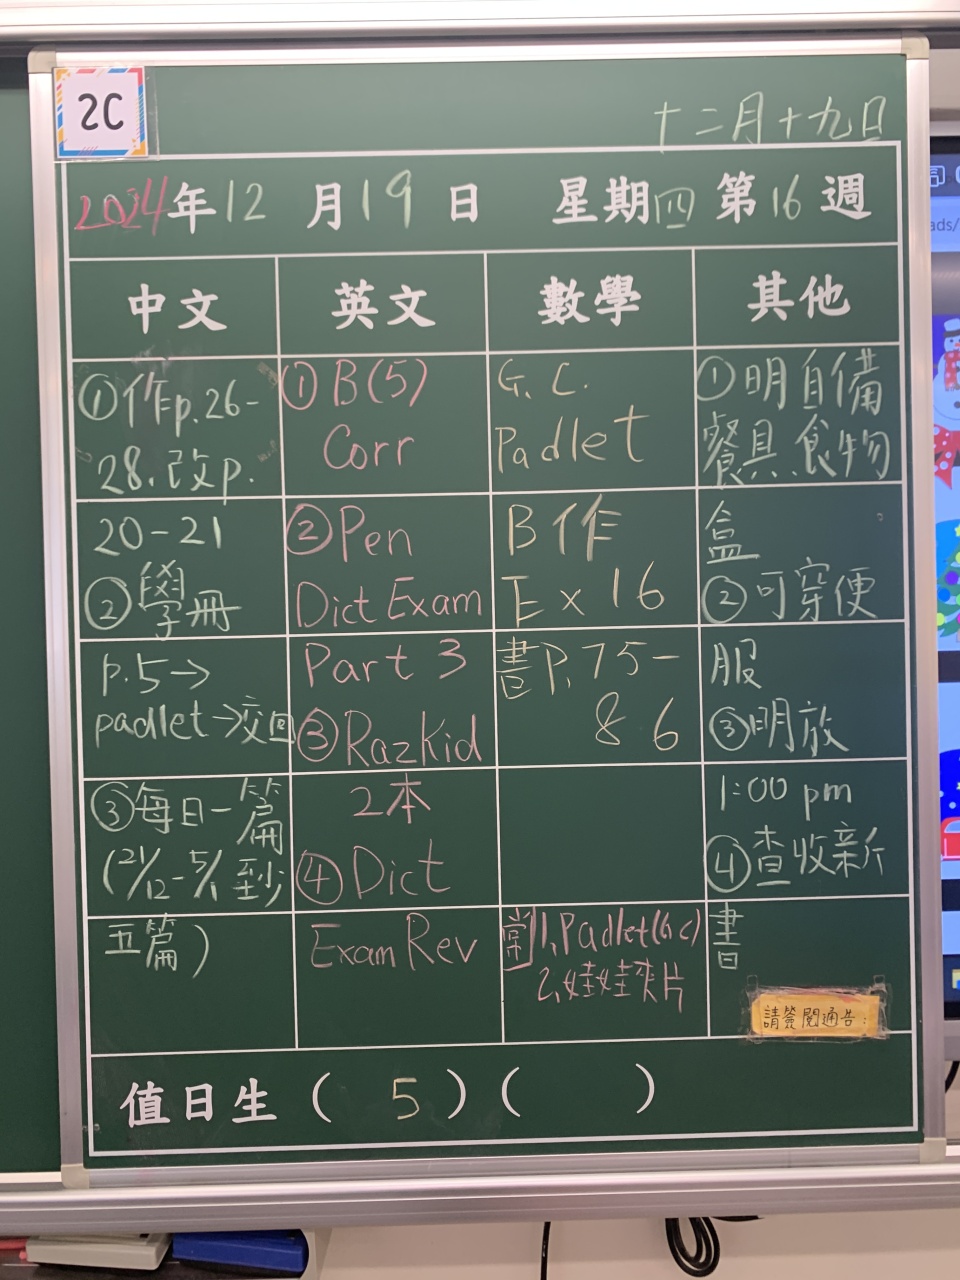 2C
十二月十九日
2024年12月19日 星期四 第16週
中文
①作p.26-
28.改p.
20-21
②學冊
p.5→
padlet→交回
③每日一篇
(21/12-5/1 至少
五篇)
英文
①B(5)
Corr
②Pen
Dict Exam
Part 3
③RazKid
2本
④Dict
Exam Rev
數學
G.C.
Padlet
B作
Ex 16
書P.75-
86
常1.Padlet(GC)
2.娃娃夾片
其他
①明自備
餐具、食物
盒
②可穿便
服
③明放
1:00 pm
④查收新
書
請簽閱通告:
值日生(5)( )
ads/